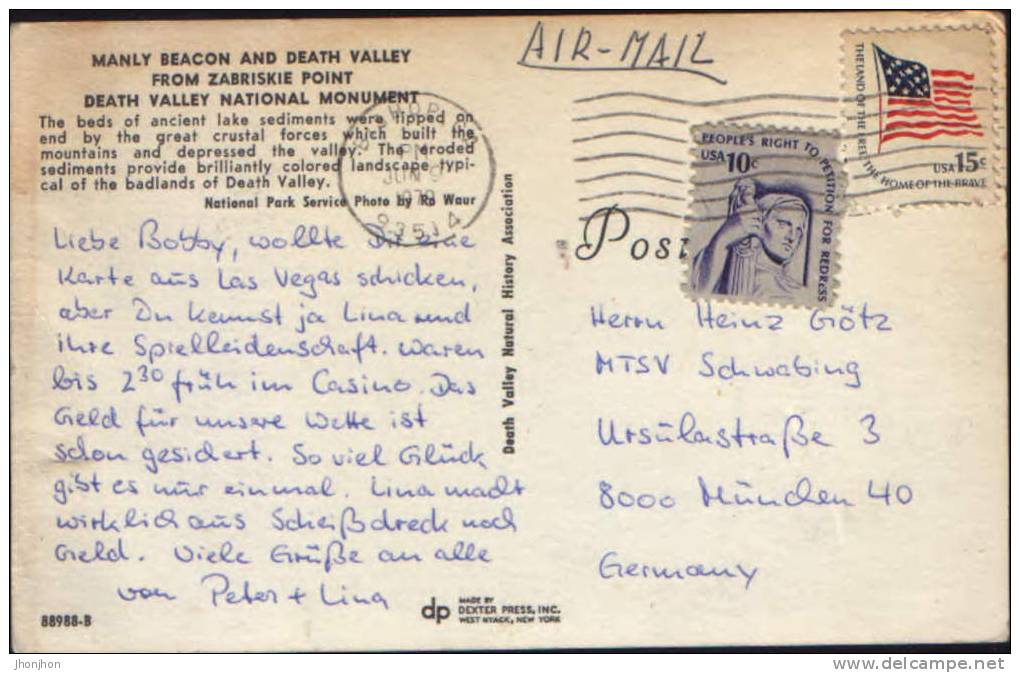 AIR-MAIL
MANLY BEACON AND DEATH VALLEY
FROM ZABRISKIE POINT
DEATH VALLEY NATIONAL MONUMENT
The beds of ancient lake sediments were tipped on
end by the great crustal forces which built the
mountains and depressed the valley. The eroded
sediments provide brilliantly colored landscape typi-
cal of the badlands of Death Valley.
National Park Service Photo by Ro Waur
PM
JUN 9
1979
9351
THE LAND OF THE FREE, THE HOME OF THE BRAVE
USA 15c
PEOPLE'S RIGHT TO PETITION FOR REDRESS
USA 10c
Liebe Bobby, wollte Dir eine
Karte aus Las Vegas schicken,
aber Du kennst ja Lina und
ihre Spielleidenschaft. Waren
bis 2 30 früh im Casino. Das
Geld für unsere Wette ist
schon gesichert. So viel Glück
gibt es nur einmal. Lina macht
wirklich aus Scheißdreck noch
Geld. Viele Grüße an alle
von Peter + Lina
Death Valley Natural History Association
Pos
Herrn Heinz Götz
MTSV Schwabing
Ursulastraße 3
8000 München 40
Germany
88988-B
dp
MADE BY
DEXTER PRESS, INC.
WEST NYACK, NEW YORK
jhonjhon
www.delcampe.net